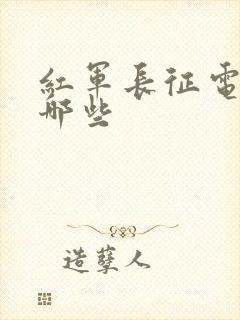 紅軍長征電
哪些
造孽人